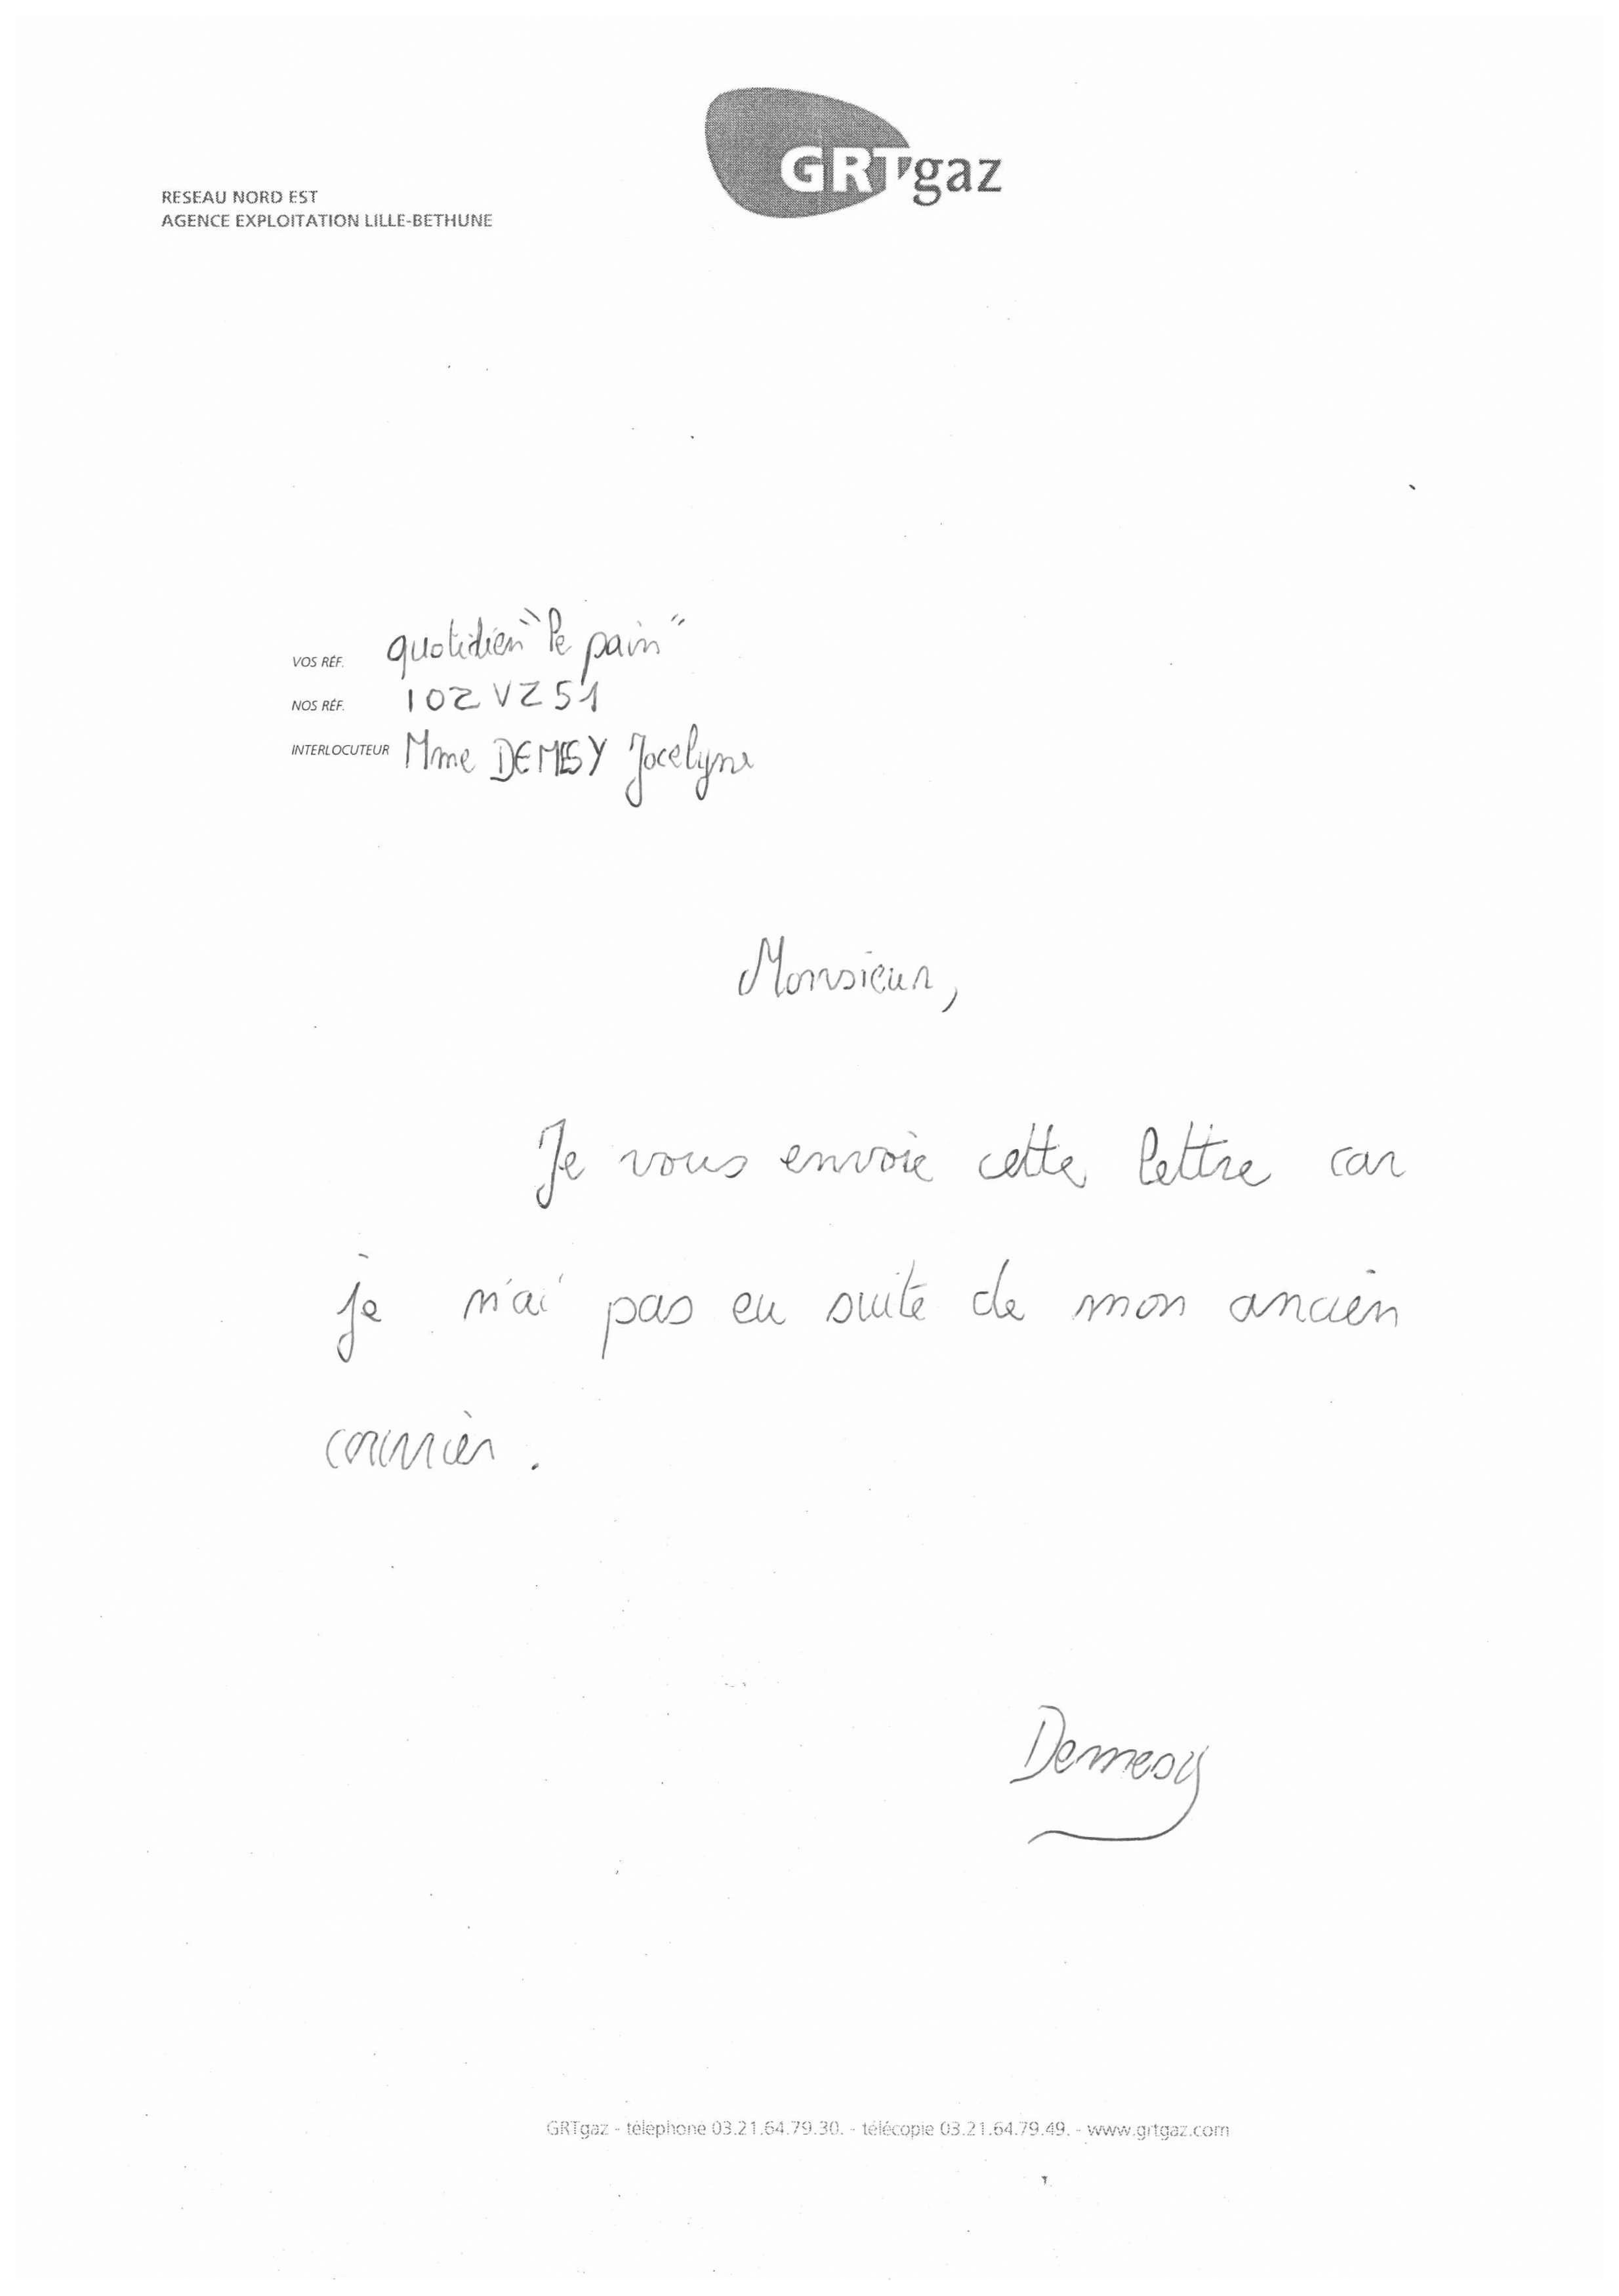 GRTgaz
RESEAU NORD EST
AGENCE EXPLOITATION LILLE-BETHUNE
VOS RÉF. quotidien "le pain"
NOS RÉF. 102VZ51
INTERLOCUTEUR Mme DEMESY Jocelyne
Monsieur,
Je vous envoie cette lettre car
je n'ai pas eu suite de mon ancien
courrier.
Demesy
GRTgaz - téléphone 03.21.64.79.30. - télécopie 03.21.64.79.49. - www.grtgaz.com